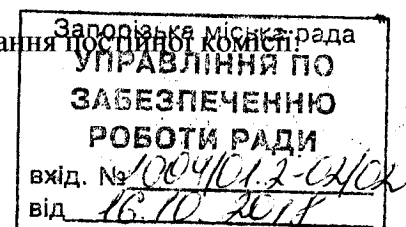 ання постійної комісії!
Запорізька міська рада
УПРАВЛІННЯ ПО
ЗАБЕЗПЕЧЕННЮ
РОБОТИ РАДИ
вхід. № 1004/01.2-02/02
від 16.10.2017